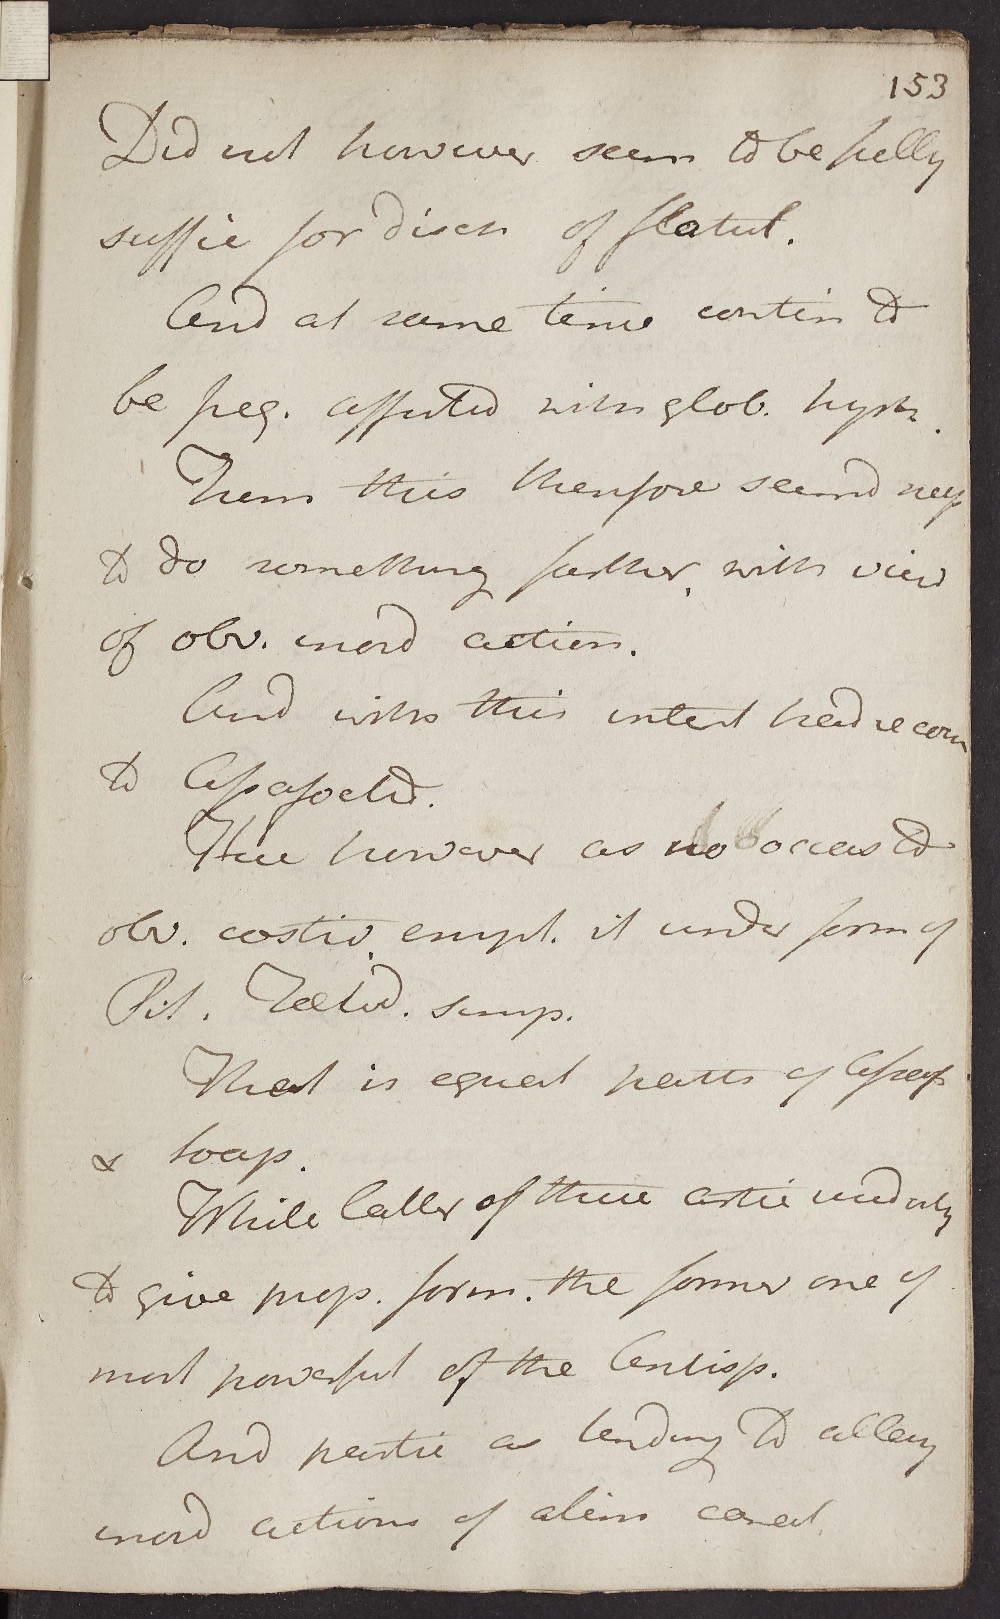 153
Did not however seem to be fully
suffic for disch of flatul.
And at same time contin to
be freq. affected with glob. hyst.
From this therefore seemd necess
to do something further, with view
of obv. inord action.
And with this intent had recour
to Assafoetid.
Here however as no access to
obv. costiv, empl. it under form of
Pil. Foetid. simp.
That is equal parts of Assaf
& soap.
While latter of these artic used only
to give prop. form. the former one of
most powerful of the Antisp.
And partic as tending to allay
inord actions of alim canal